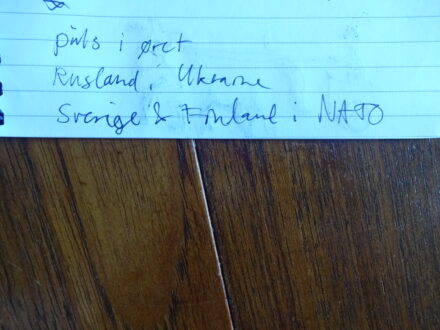 puls i øret
Rusland, Ukraine
Sverige & Finland i NATO